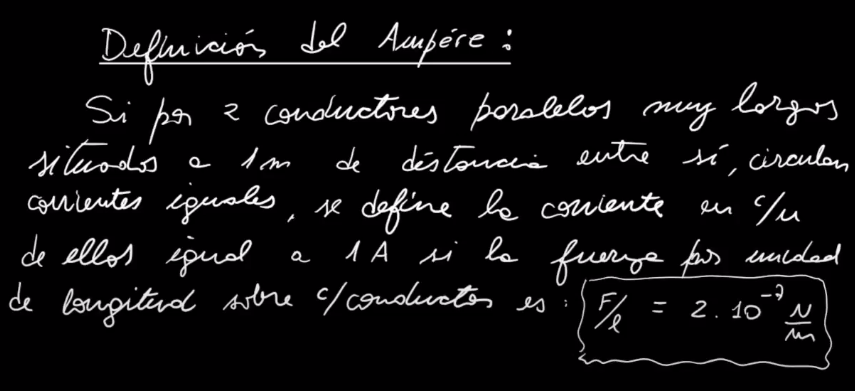 Definición del Ampére:
Si por 2 conductores paralelos muy largos
situados a 1m de distancia entre sí, circulan
corrientes iguales, se define la corriente en c/u
de ellos igual a 1 A si la fuerza por unidad
de longitud sobre c/conductor es: F/l = 2.10⁻⁷ N/m